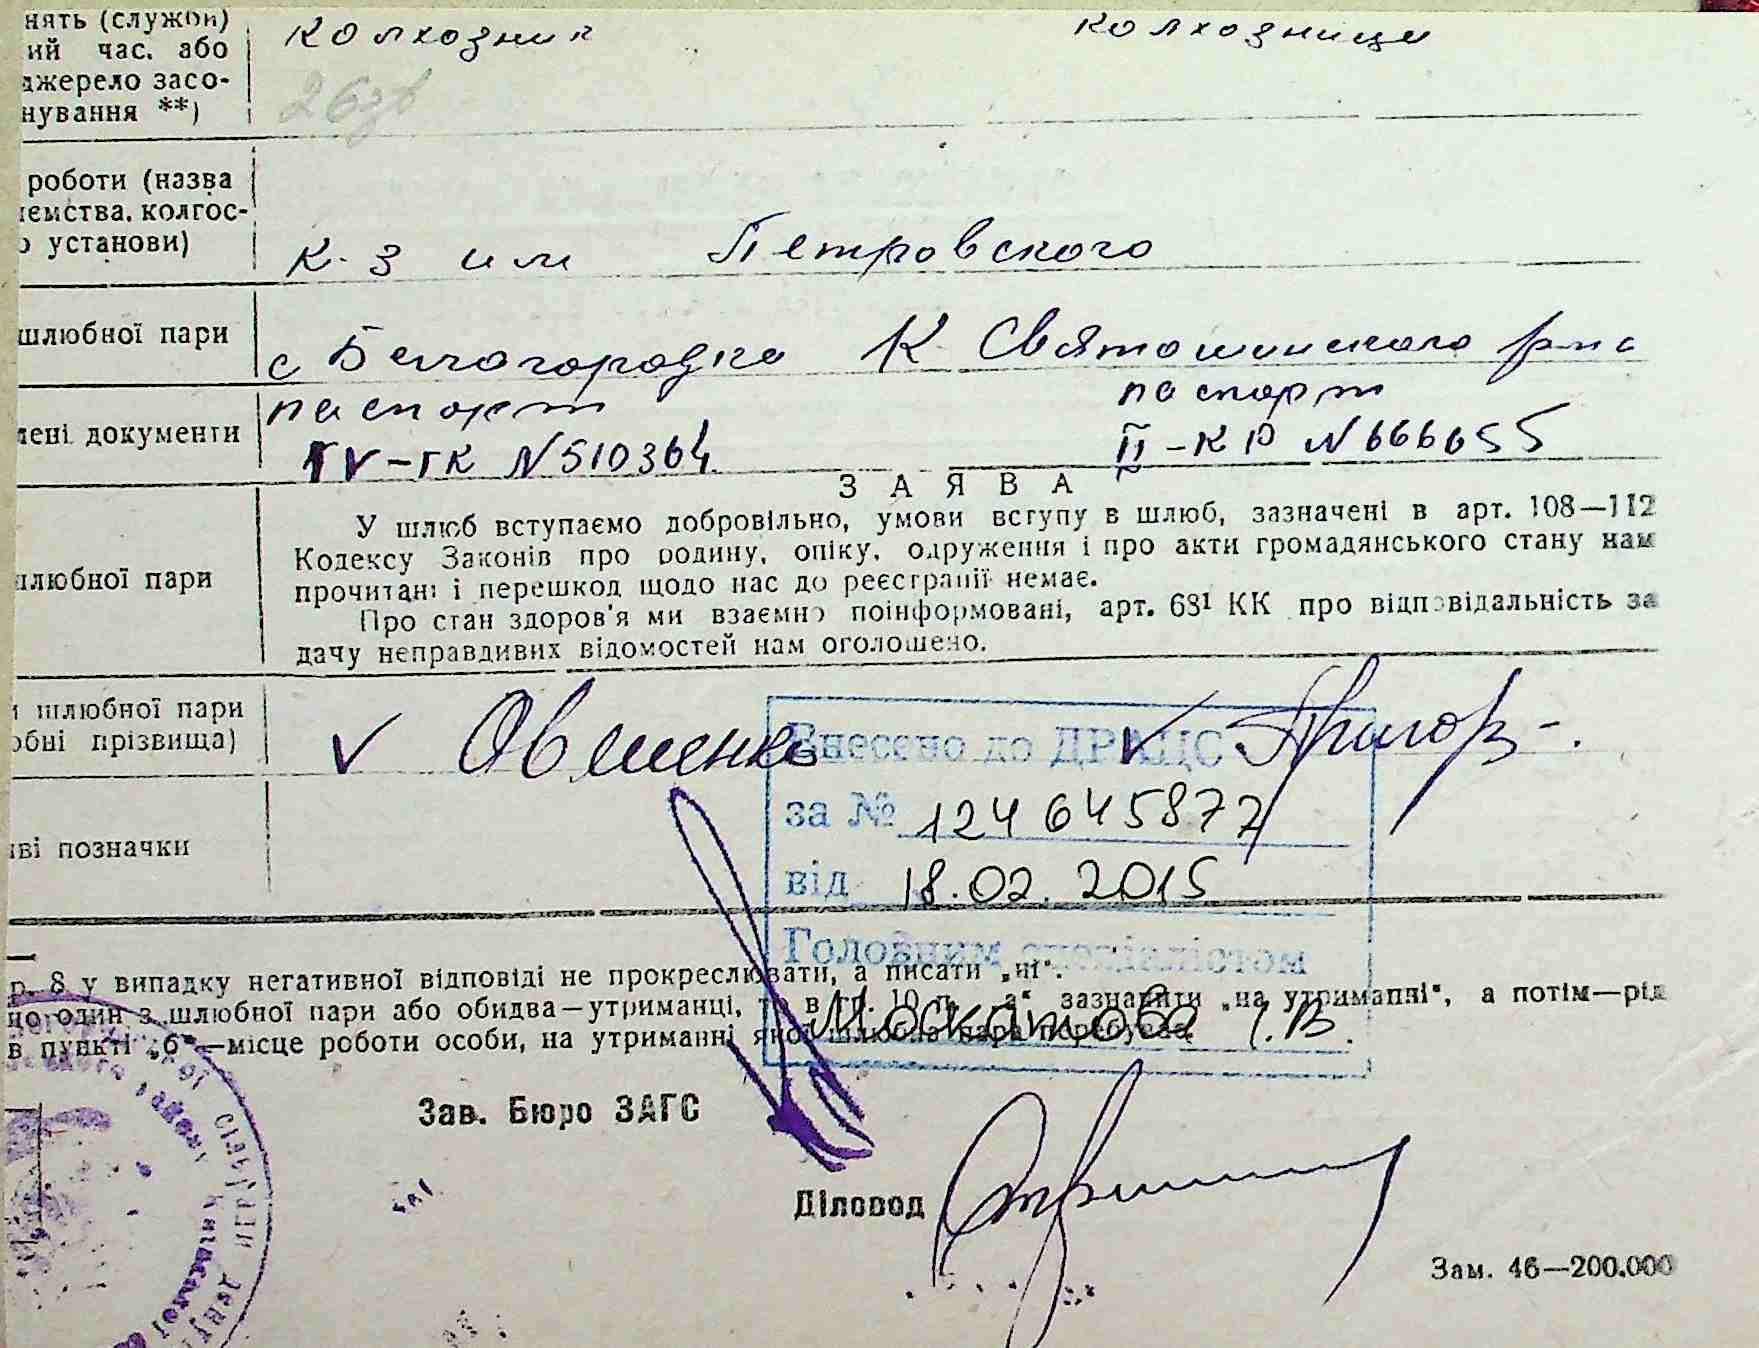 нять (служби) колхозник колхозници
ий час. або
джерело засо-
нування **) 26зв
роботи (назва
ємства, колгос-
о установи) к-з им Петровского
шлюбної пари с Белогородка К Святошинского р-на
паспорт паспорт
лені документи IV-ГК N 510364 II-КР N 666655
ЗАЯВА
У шлюб вступаємо добровільно, умови вступу в шлюб, зазначені в арт. 108—112
Кодексу Законів про родину, опіку, одруження і про акти громадянського стану нам
шлюбної пари прочитані і перешкод щодо нас до реєстрації немає.
Про стан здоров'я ми взаємно поінформовані, арт. 68¹ КК про відповідальність за
дачу неправдивих відомостей нам оголошено.
и шлюбної пари
обні прізвища) V Овшенко V
Внесено до ДРАЦС
за № 124645877
ві позначки
від 18.02.2015
Головним спеціалістом
р. 8 у випадку негативної відповіді не прокреслювати, а писати „ні“.
що один з шлюбної пари або обидва—утриманці, то в гр. 10 п. „а“ зазначити „на утриманні“, а потім—рід
в пункті „б“—місце роботи особи, на утриманні якої шлюбна пара перебуває.
І.В.
Зав. Бюро ЗАГС
Діловод
Зам. 46—200.000
сільради депу
району Київської